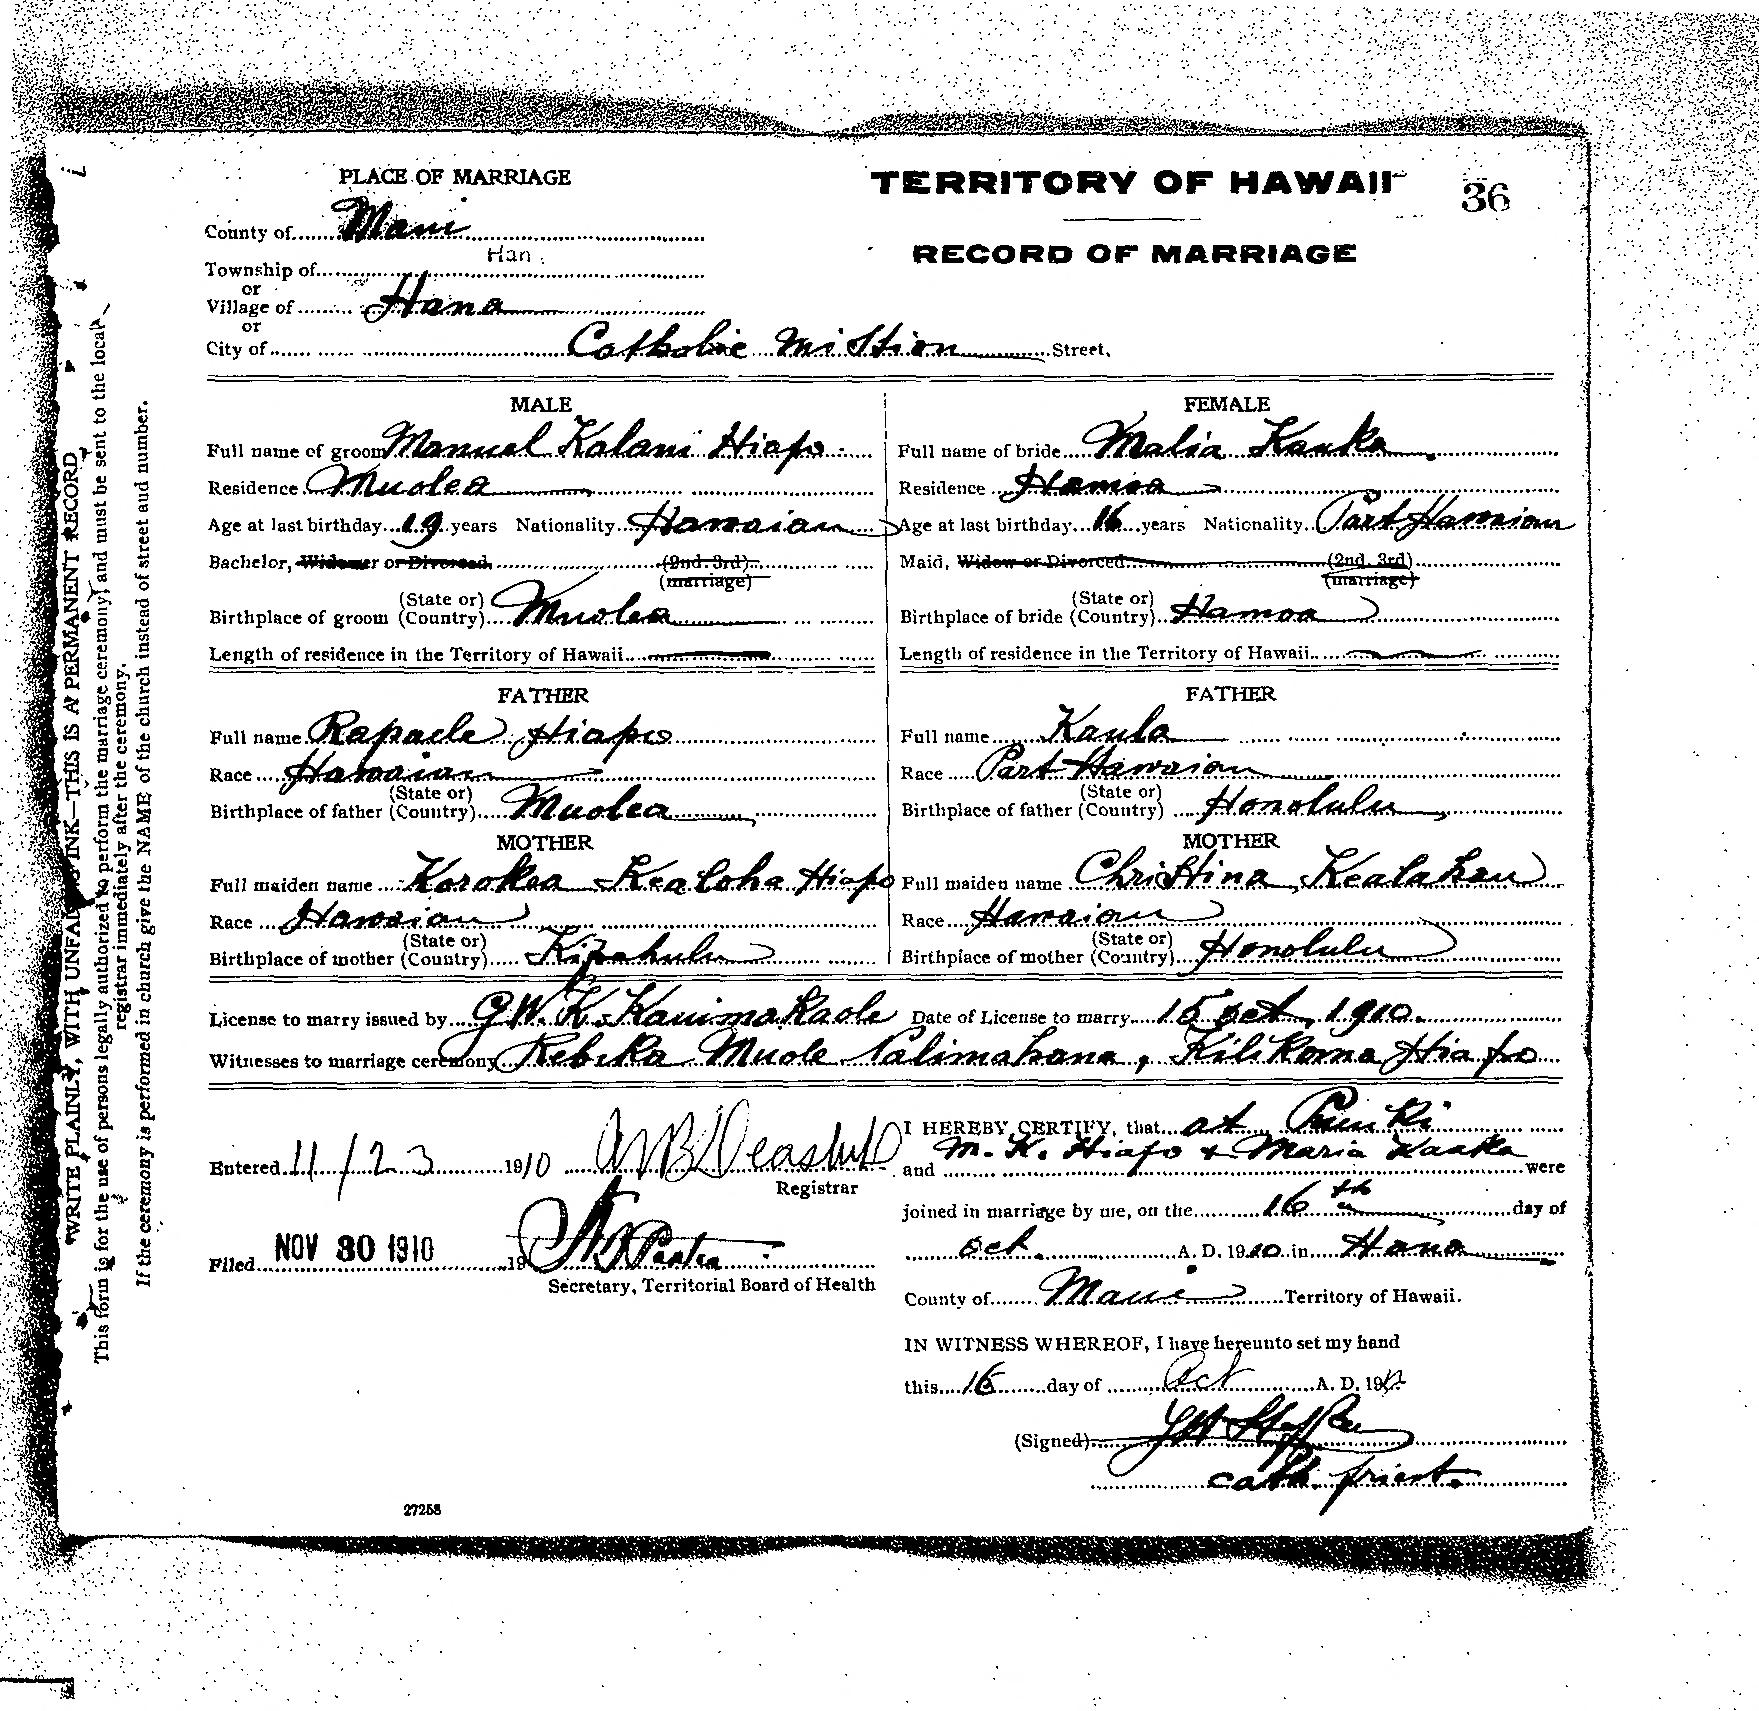 PLACE OF MARRIAGE
TERRITORY OF HAWAII
36
County of Maui
RECORD OF MARRIAGE
Han
Township of
or
Village of Hana
or
City of Catholic Mission Street.
MALE
Full name of groom Manuel Kalani Hiapo
Residence Muolea
Age at last birthday 19 years Nationality Hawaian
Bachelor, Widower or Divorced (2nd 3rd)
(marriage)
(State or)
Birthplace of groom (Country) Muolea
Length of residence in the Territory of Hawaii
FEMALE
Full name of bride Malia Kauka
Residence Hamoa
Age at last birthday 16 years Nationality Part Hawaian
Maid, Widow or Divorced (2nd 3rd)
(marriage)
(State or)
Birthplace of bride (Country) Hamoa
Length of residence in the Territory of Hawaii
FATHER
Full name Rapaele Hiapo
Race Hawaian
(State or)
Birthplace of father (Country) Muolea
MOTHER
Full maiden name Korokea Kealoha Hiapo
Race Hawaian
(State or)
Birthplace of mother (Country) Kipahulu
FATHER
Full name Kaula
Race Part Hawaian
(State or)
Birthplace of father (Country) Honolulu
MOTHER
Full maiden name Christina Kealahau
Race Hawaian
(State or)
Birthplace of mother (Country) Honolulu
License to marry issued by G.W.K. Kauimakaole Date of License to marry 15 Oct, 1910.
Witnesses to marriage ceremony Rebeka Muole Palimahana, Kilikoma Hiapo
Entered 11/23 1910
Registrar
Filed NOV 30 1910 19
Secretary, Territorial Board of Health
I HEREBY CERTIFY, that at Puuiki
M. K. Hiapo & Maria Kauka
and were
joined in marriage by me, on the 16th day of
Oct. A. D. 1910 in Hana
County of Maui Territory of Hawaii.
IN WITNESS WHEREOF, I have hereunto set my hand
this 16 day of Oct A. D. 19
(Signed)
cath. priest.
27258
WRITE PLAINLY, WITH UNFADING INK—THIS IS A PERMANENT RECORD
This form is for the use of persons legally authorized to perform the marriage ceremony, and must be sent to the local
registrar immediately after the ceremony.
If the ceremony is performed in church give the NAME of the church instead of street and number.